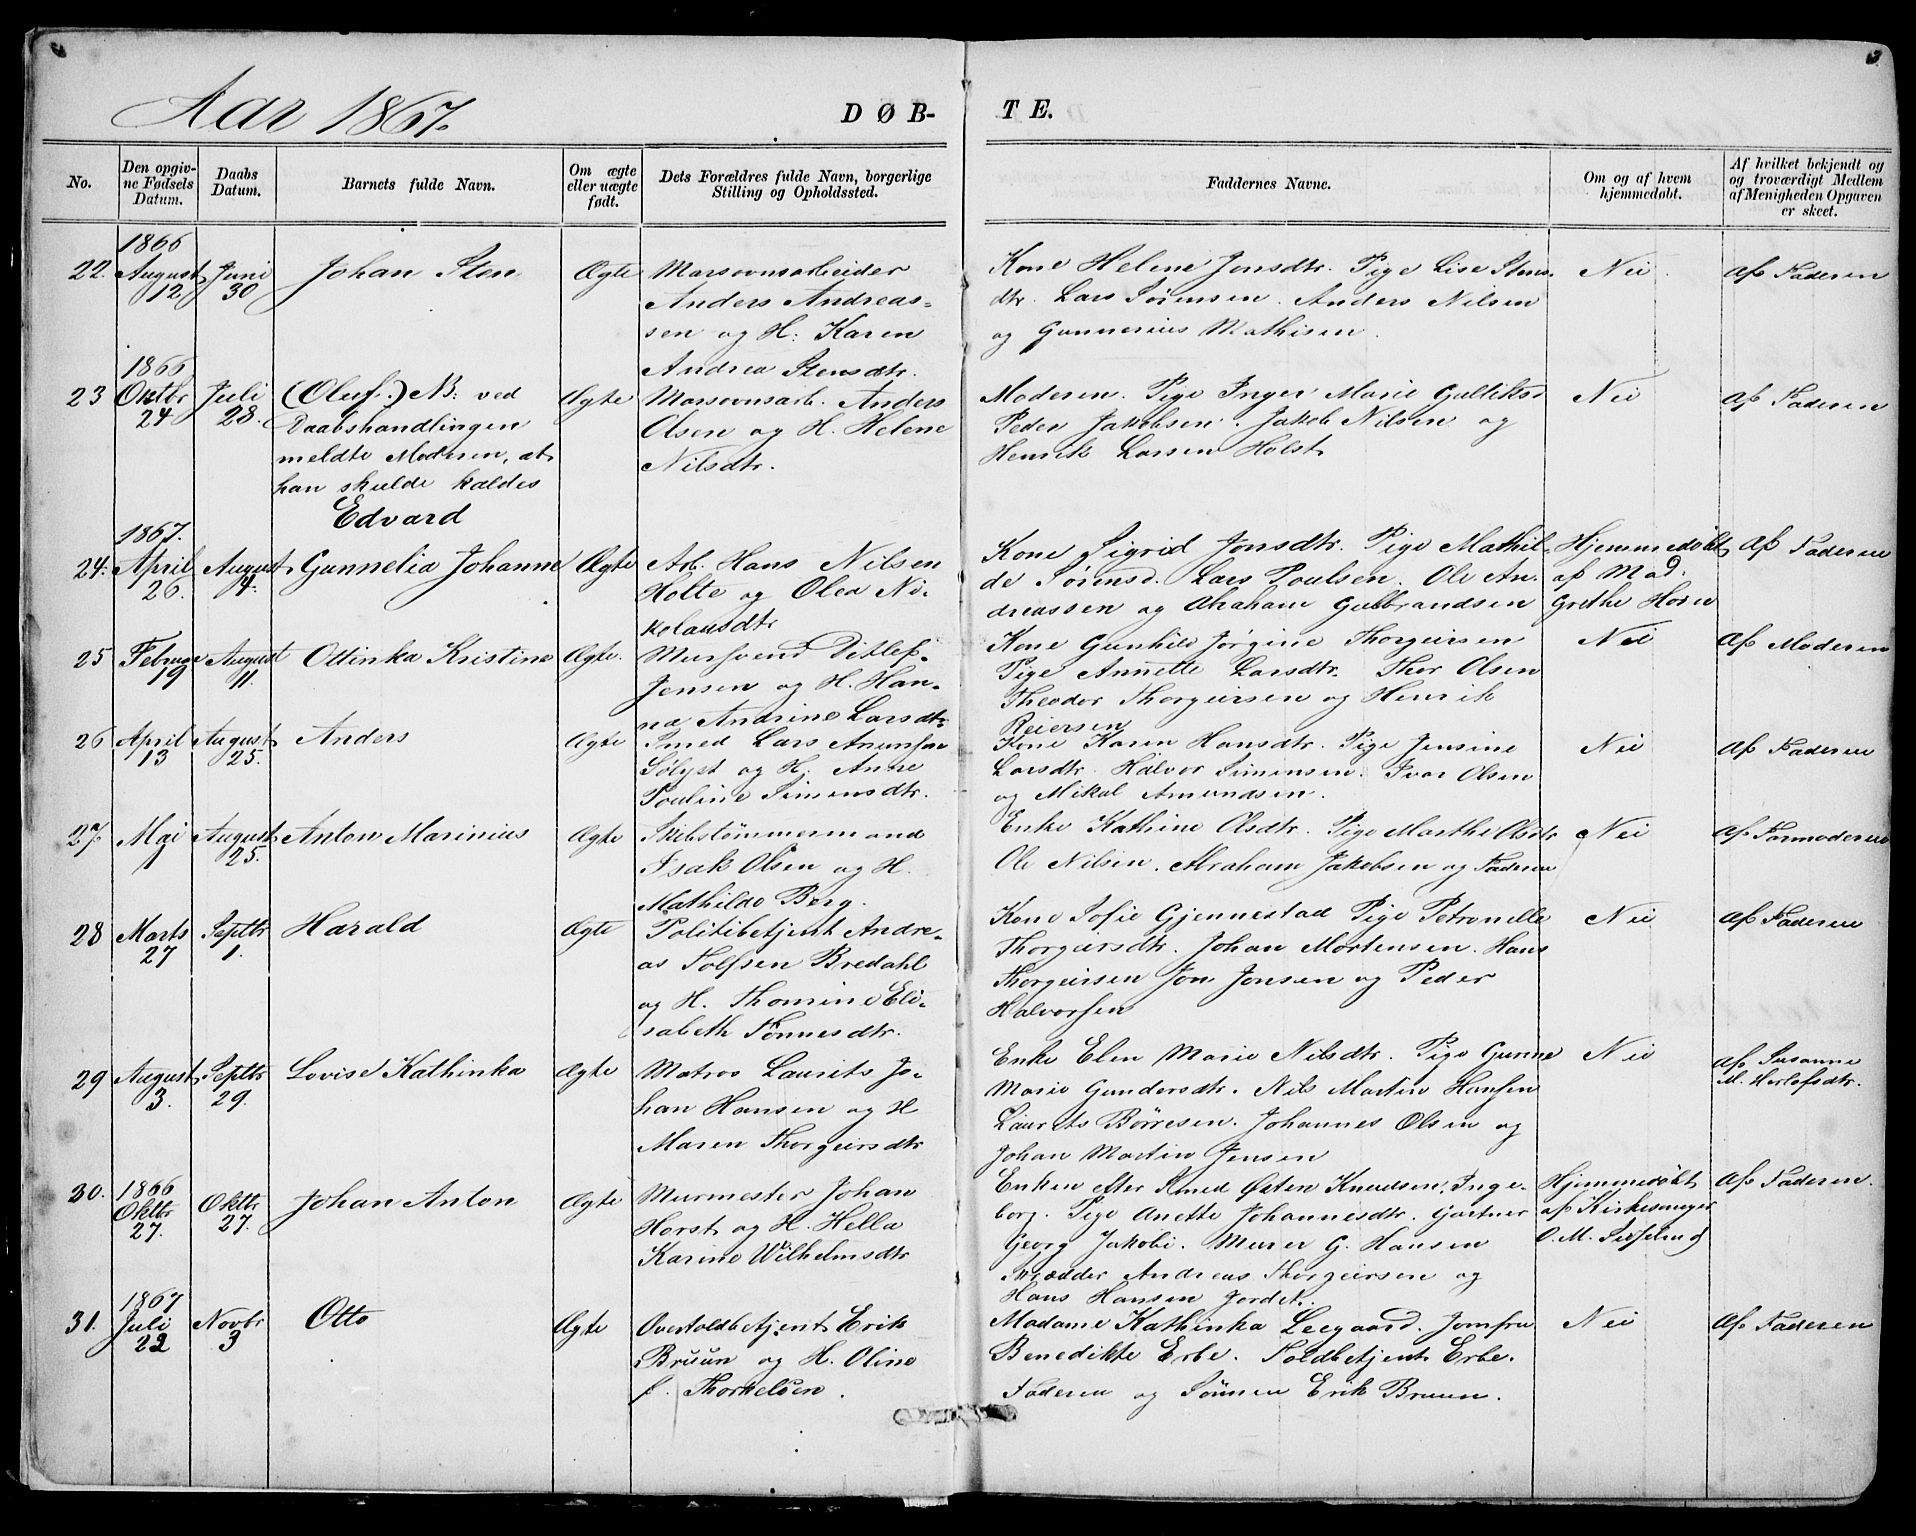 Aar 1867.
DØB-
TE.
No.
Den opgiv-
ne Fødsels
Datum.
Daabs
Datum.
Barnets fulde Navn.
Om ægte
eller uægte
født.
Dets Forældres fulde Navn, borgerlige
Stilling og Opholdssted.
Faddernes Navne.
Om og af hvem
hjemmedøbt.
Af hvilket bekjendt og
og troværdigt Medlem
af Menigheden Opgaven
er skeet.
22.
1866
August
12
Juni
30
Johan Sten
Ægte
Marsovnsarbeider
Anders Andreas-
sen og H: Karen
Andrea Stensdtr.
Kone Helene Jonsdtr. Pige Lise Stens-
dtr. Lars Sørensen. Anders Nilsen
og Gunnerius Mathisen.
Nei
Af Faderen
23
1866
Oktbr
24
Juli
28.
(Oluf.) NB: ved
Daabshandlingen
meldte Moderen, at
han skulde kaldes
Edvard
Ægte
Marsovnsarb. Anders
Olsen og H. Helene
Nilsdtr.
Moderen. Pige Inger Marie Gulliksd
Peder Jakobsen. Jakob Nilsen og
Henrik Larsen Holst
Nei
Af Faderen
24.
1867.
April
26.
August
4.
Gunnelia Johanne
Ægte
Arb. Hans Nilsen
Holte og Olea Ni-
kolausdtr
Kone Sigrid Jonsdtr. Pige Mathil-
de Sørensd. Lars Poulsen. Ole An-
dreassen og Abraham Gulbrandsen
Hjemmedøbt
af Mad.
Grethe Horn
Af Faderen
25
Februar
19
August
11.
Ottinka Kristine
Ægte.
Mursvend Ditlef
Jensen og H. Han-
na Andrine Larsdtr.
Kone Gunhild Jørgine Thorgersen
Pige Annette Larsdtr. Thor Olsen
Theodor Thorgersen og Henrik
Reiersen
Nei
Af Moderen
26
April
13
August
25.
Anders
Ægte
Smed Lars Amundsen
Sølyst og H. Anne
Pouline Simensdtr.
Kone Karen Hansdtr. Pige Jensine
Larsdtr. Halvor Simensen. Ivar Olsen
og Mikal Amundsen.
Nei
Af Faderen
27.
Mai
1
August
25.
Anton Marinius
Ægte
Skibstømmermand
Isak Olsen og H.
Mathilde Berg.
Enke Kathrine Olsdtr. Pige Marthe Olsdtr
Ole Nilsen. Abraham Jakobsen og Faderen
Nei
Af Farmoderen
28
Marts
27
Septbr
1.
Harald
Ægte
Politibetjent Andre-
as Tolfsen Bredahl
og H. Thomine Eli-
sabeth Tønnesdtr.
Kone Sofie Gjennestad Pige Petronelle
Thorgersdtr. Johan Mortensen. Hans
Thorgersen Jon Jonsen og Peder
Halvorsen
Nei
Af Faderen
29
August
3.
Septbr
29.
Lovise Kathinka
Ægte
Matros Laurits Jo-
han Hansen og H
Maren Thorgersdtr
Enke Elen Marie Nilsdtr. Pige Gunne
Marie Gundersdtr. Nils Martin Hansen
Laurits Børresen. Johannes Olsen og
Johan Martin Jensen
Nei
Af Susanne
M. Herlofsdtr.
30.
1866
Oktbr
27.
Oktbr
27.
Johan Anton
Ægte
Murmester Johan
Horst og H. Hella
Karine Wilhelmsdtr
Enken efter Smed Østen Knudsen, Inge-
borg. Pige Anette Johannesdtr. Gartner
Georg Jakobi. Murer G. Hansen
Skrædder Andreas Thorgersen og
Hans Hansen Jordet.
Hjemmedøbt
af Kirkesanger
O. M.
Af Faderen.
31.
1867
Juli
22
Novbr
3
Otto
Ægte
Overtoldbetjent Erik
Bruun og H. Oline
f. Thorkelsen.
Madame Kathinka Leegaard. Jomfru
Benedikte Erbe. Toldbetjent Erbe.
Faderen og Sønnen Erik Bruun.
Nei
Af Faderen